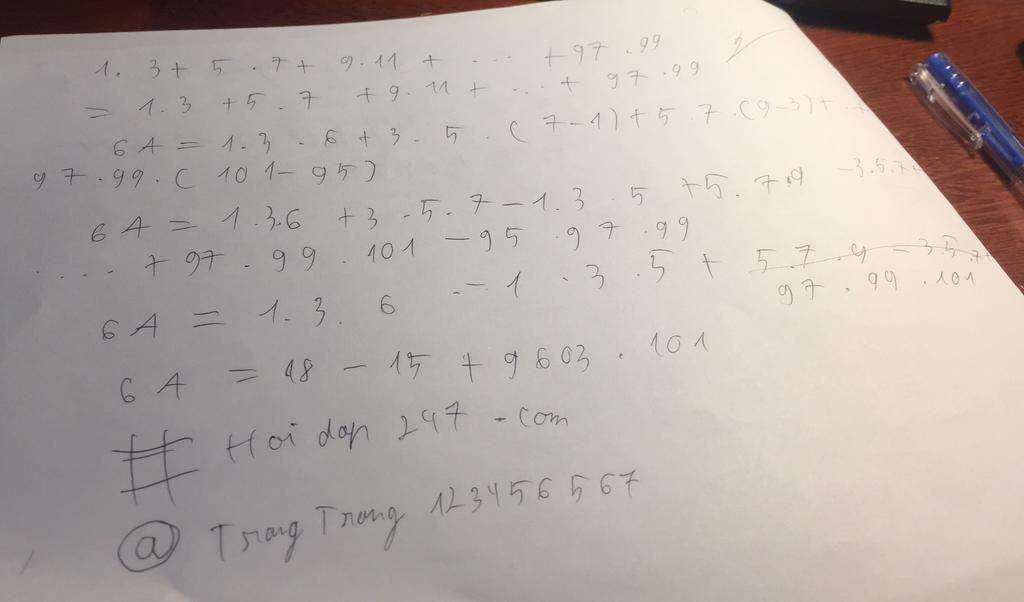 1. 3 + 5 . 7 + 9.11 + ... + 97 . 99
= 1.3 + 5 . 7 + 9.11 + ... + 97 . 99
6A = 1.3 . 6 + 3 . 5 . ( 7-1) + 5 . 7 . (9-3) +
97.99.( 101-95)
6A = 1.3.6 + 3 .5. 7 - 1.3 . 5 + 5 . 7.9 - 3.5.7+
.... + 97 . 99 . 101 - 95 . 97 . 99
6A = 1.3. 6 .- 1 . 3 . 5 + 5.7.9 - 3.5.7+
97 . 99 . 101
6A = 18 - 15 + 9603 . 101
# Hoi dap 247 .com
@ Trang Trang 123456567